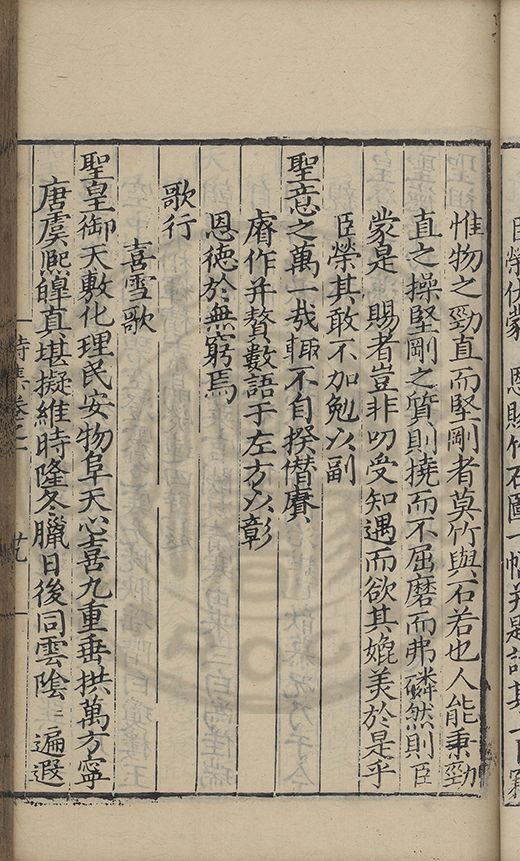 臣榮伏蒙　恩賜竹石圖一幀并題詩其上竊
惟物之勁直而堅剛者莫竹與石若也人能秉勁
直之操堅剛之質則撓而不屈磨而弗磷然則臣
蒙是　賜者豈非叨受知遇而欲其媲美於是乎
臣榮其敢不加勉以副
聖意之萬一哉輙不自揆僣賡
睿作并贅數語于左方以彰
恩德於無窮焉
歌行
喜雪歌
聖皇御天敷化理民安物阜天心喜九重垂拱萬方寧
唐虞熈皥直堪擬維時隆冬臘日後同雲陰三遍遐
詩集卷之一　廿九